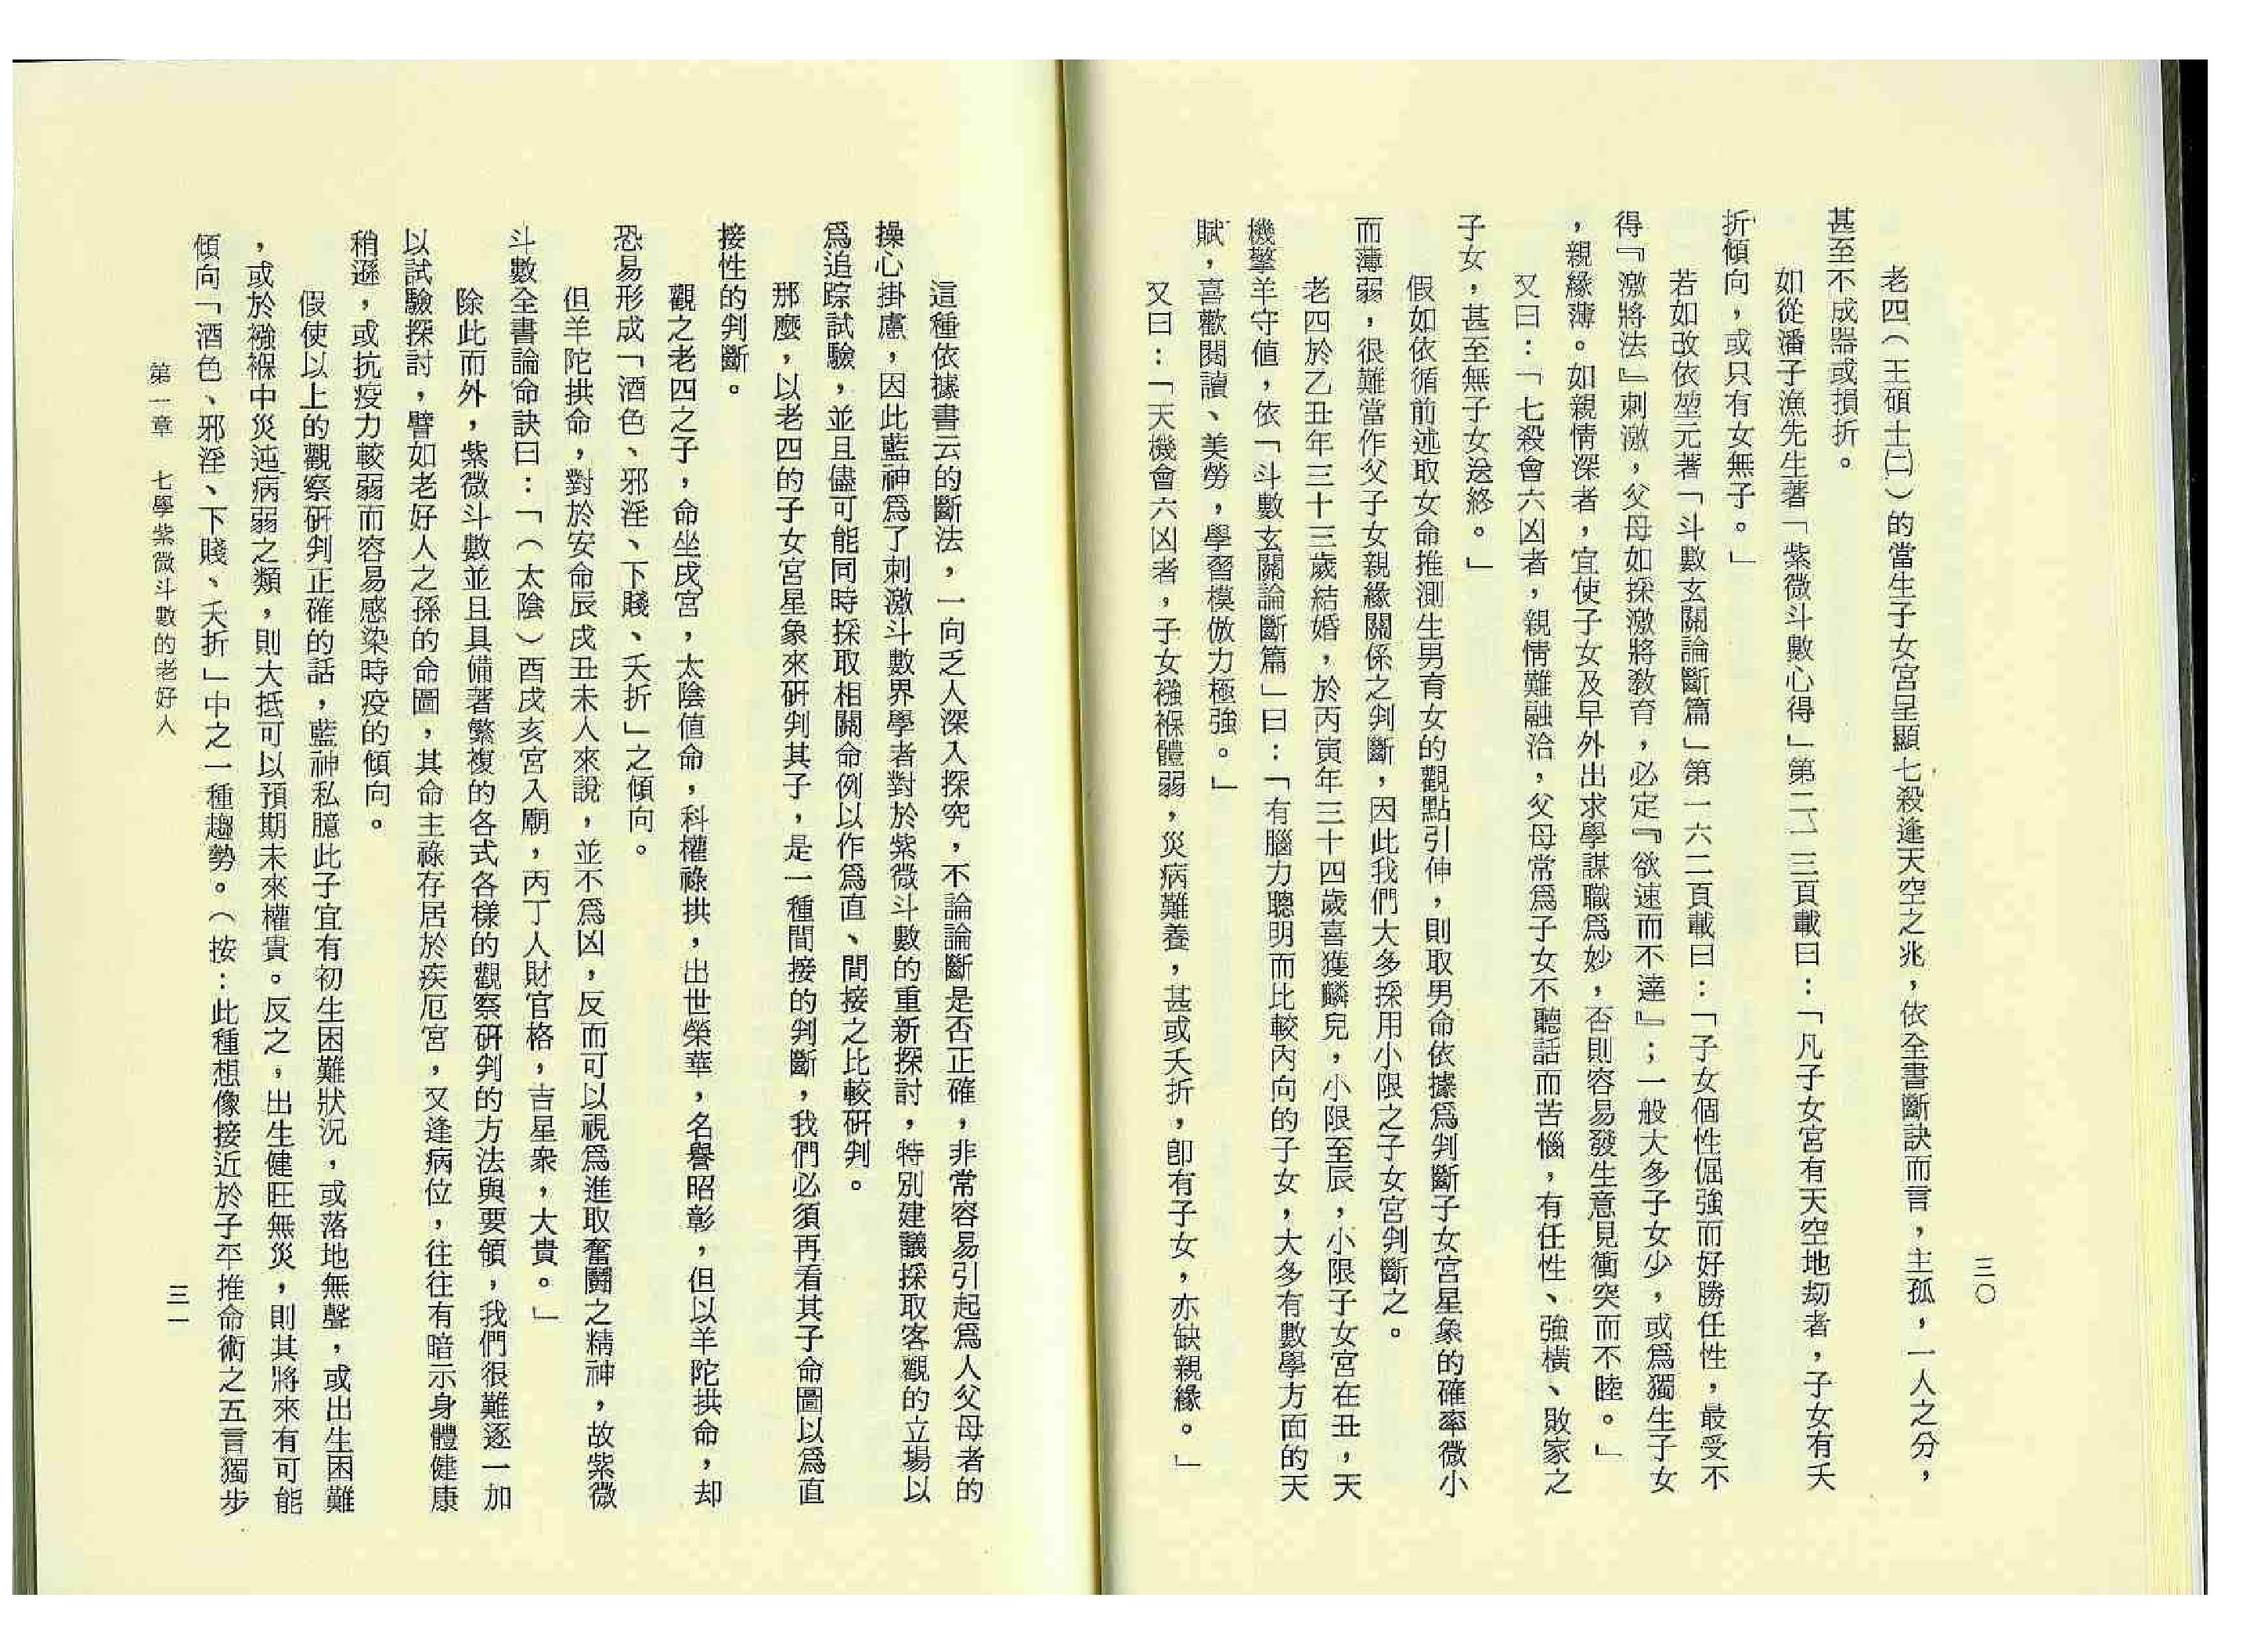 三〇
老四（王碩士㈡）的當生子女宮呈顯七殺逢天空之兆，依全書斷訣而言，主孤，一人之分，
甚至不成器或損折。
如從潘子漁先生著「紫微斗數心得」第二一三頁載曰：「凡子女宮有天空地刼者，子女有夭
折傾向，或只有女無子。」
若如改依堃元著「斗數玄關論斷篇」第一六二頁載曰：「子女個性倔強而好勝任性，最受不
得『激將法』刺激，父母如採激將教育，必定『欲速而不達』；一般大多子女少，或爲獨生子女
，親緣薄。如親情深者，宜使子女及早外出求學謀職爲妙，否則容易發生意見衝突而不睦。」
又曰：「七殺會六凶者，親情難融洽，父母常爲子女不聽話而苦惱，有任性、強橫、敗家之
子女，甚至無子女送終。」
假如依循前述取女命推測生男育女的觀點引伸，則取男命依據爲判斷子女宮星象的確率微小
而薄弱，很難當作父子女親緣關係之判斷，因此我們大多採用小限之子女宮判斷之。
老四於乙丑年三十三歲結婚，於丙寅年三十四歲喜獲麟兒，小限至辰，小限子女宮在丑，天
機擎羊守值，依「斗數玄關論斷篇」曰：「有腦力聰明而比較內向的子女，大多有數學方面的天
賦，喜歡閱讀、美勞，學習模倣力極強。」
又曰：「天機會六凶者，子女襁褓體弱，災病難養，甚或夭折，卽有子女，亦缺親緣。」
這種依據書云的斷法，一向乏人深入探究，不論論斷是否正確，非常容易引起爲人父母者的
操心掛慮，因此藍神爲了刺激斗數界學者對於紫微斗數的重新探討，特別建議採取客觀的立場以
爲追踪試驗，並且儘可能同時採取相關命例以作爲直、間接之比較硏判。
那麼，以老四的子女宮星象來硏判其子，是一種間接的判斷，我們必須再看其子命圖以爲直
接性的判斷。
觀之老四之子，命坐戌宮，太陰值命，科權祿拱，出世榮華，名譽昭彰，但以羊陀拱命，却
恐易形成「酒色、邪淫、下賤、夭折」之傾向。
但羊陀拱命，對於安命辰戌丑未人來說，並不爲凶，反而可以視爲進取奮鬪之精神，故紫微
斗數全書論命訣曰：「（太陰）酉戌亥宮入廟，丙丁人財官格，吉星衆，大貴。」
除此而外，紫微斗數並且具備著繁複的各式各樣的觀察硏判的方法與要領，我們很難逐一加
以試驗探討，譬如老好人之孫的命圖，其命主祿存居於疾厄宮，又逢病位，往往有暗示身體健康
稍遜，或抗疫力較弱而容易感染時疫的傾向。
假使以上的觀察硏判正確的話，藍神私臆此子宜有初生困難狀況，或落地無聲，或出生困難
，或於襁褓中災迍病弱之類，則大抵可以預期未來權貴。反之，出生健旺無災，則其將來有可能
傾向「酒色、邪淫、下賤、夭折」中之一種趨勢。（按：此種想像接近於子平推命術之五言獨步
第一章　七學紫微斗數的老好人
三一